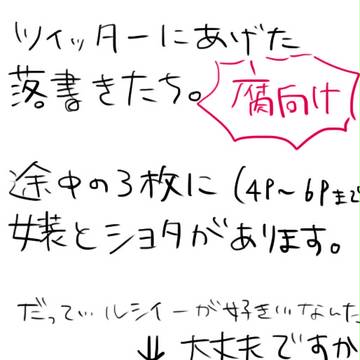 ツイッターにあげた
落書きたち。
腐向け
途中の3枚に(4P～6Pまで
女装とショタがあります。
だってルシイーが好きなんだ
⇓大丈夫ですか